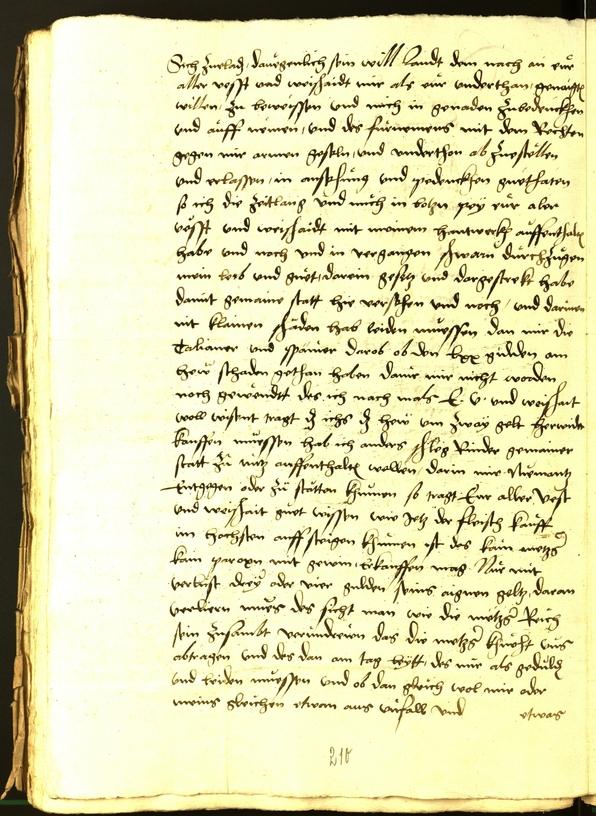 Sich zuelads dauegenlich sein will Landt den nach an eur
aller vesst und weishaidt mir als eur underthan genaigtn
willen zu beweissen und mich in genaden zubedenckhen
und auff nemen, und des furnemens mit dem Rechten
gegen mir armen geseln und underthon ab zuestellen
und erlassen, in ansehung und pedenckhen guethaten
so ich die zeitlang und mich in bozn pey eur aler
vesst und weishaidt mit meinem hantwerckh auffenthaltn
habe und noch und in vergangen schwarn durchzugen
mein leib und guet darein gesetzt und dargestrekt habe
damit gemaine statt hie versehen und noch, und darinen
nit klainen schaden hab leiden muessen dan mir die
Talianer und spanier darob ob den lxx gulden am
hew schaden gethan haben damir nie nicht worden
noch gewendtt des ich nach mals E V und weishait
woll wissent tragt das ichs das hew um zway gelt herwider
kauffen muessen hab ich anders schlog Rinder gemainer
statt zu nutz auffenthaltn wollen darin mir Niemantz
entgegen oder zu statten khumen so tragt Eur aller vest
und weishait guet wissen wie Jetz der fleisch kauff
im hochsten auffsteigen khumen ist des kain metzger
kain par oxn mit gewin erkauffen mag Nur mit
verlust drey oder vier gulden seins aignen geltz, daran
verliern mues des sicht man wie die metzger Reich
sein zusambt verunderen das die metzger khnecht aus
abtragen und des dan am tag leytt, des mir als geduldig
und leiden muessen und ob dan gleich wol mir oder
meins gleichen etwan aus unfall und
etwas
210